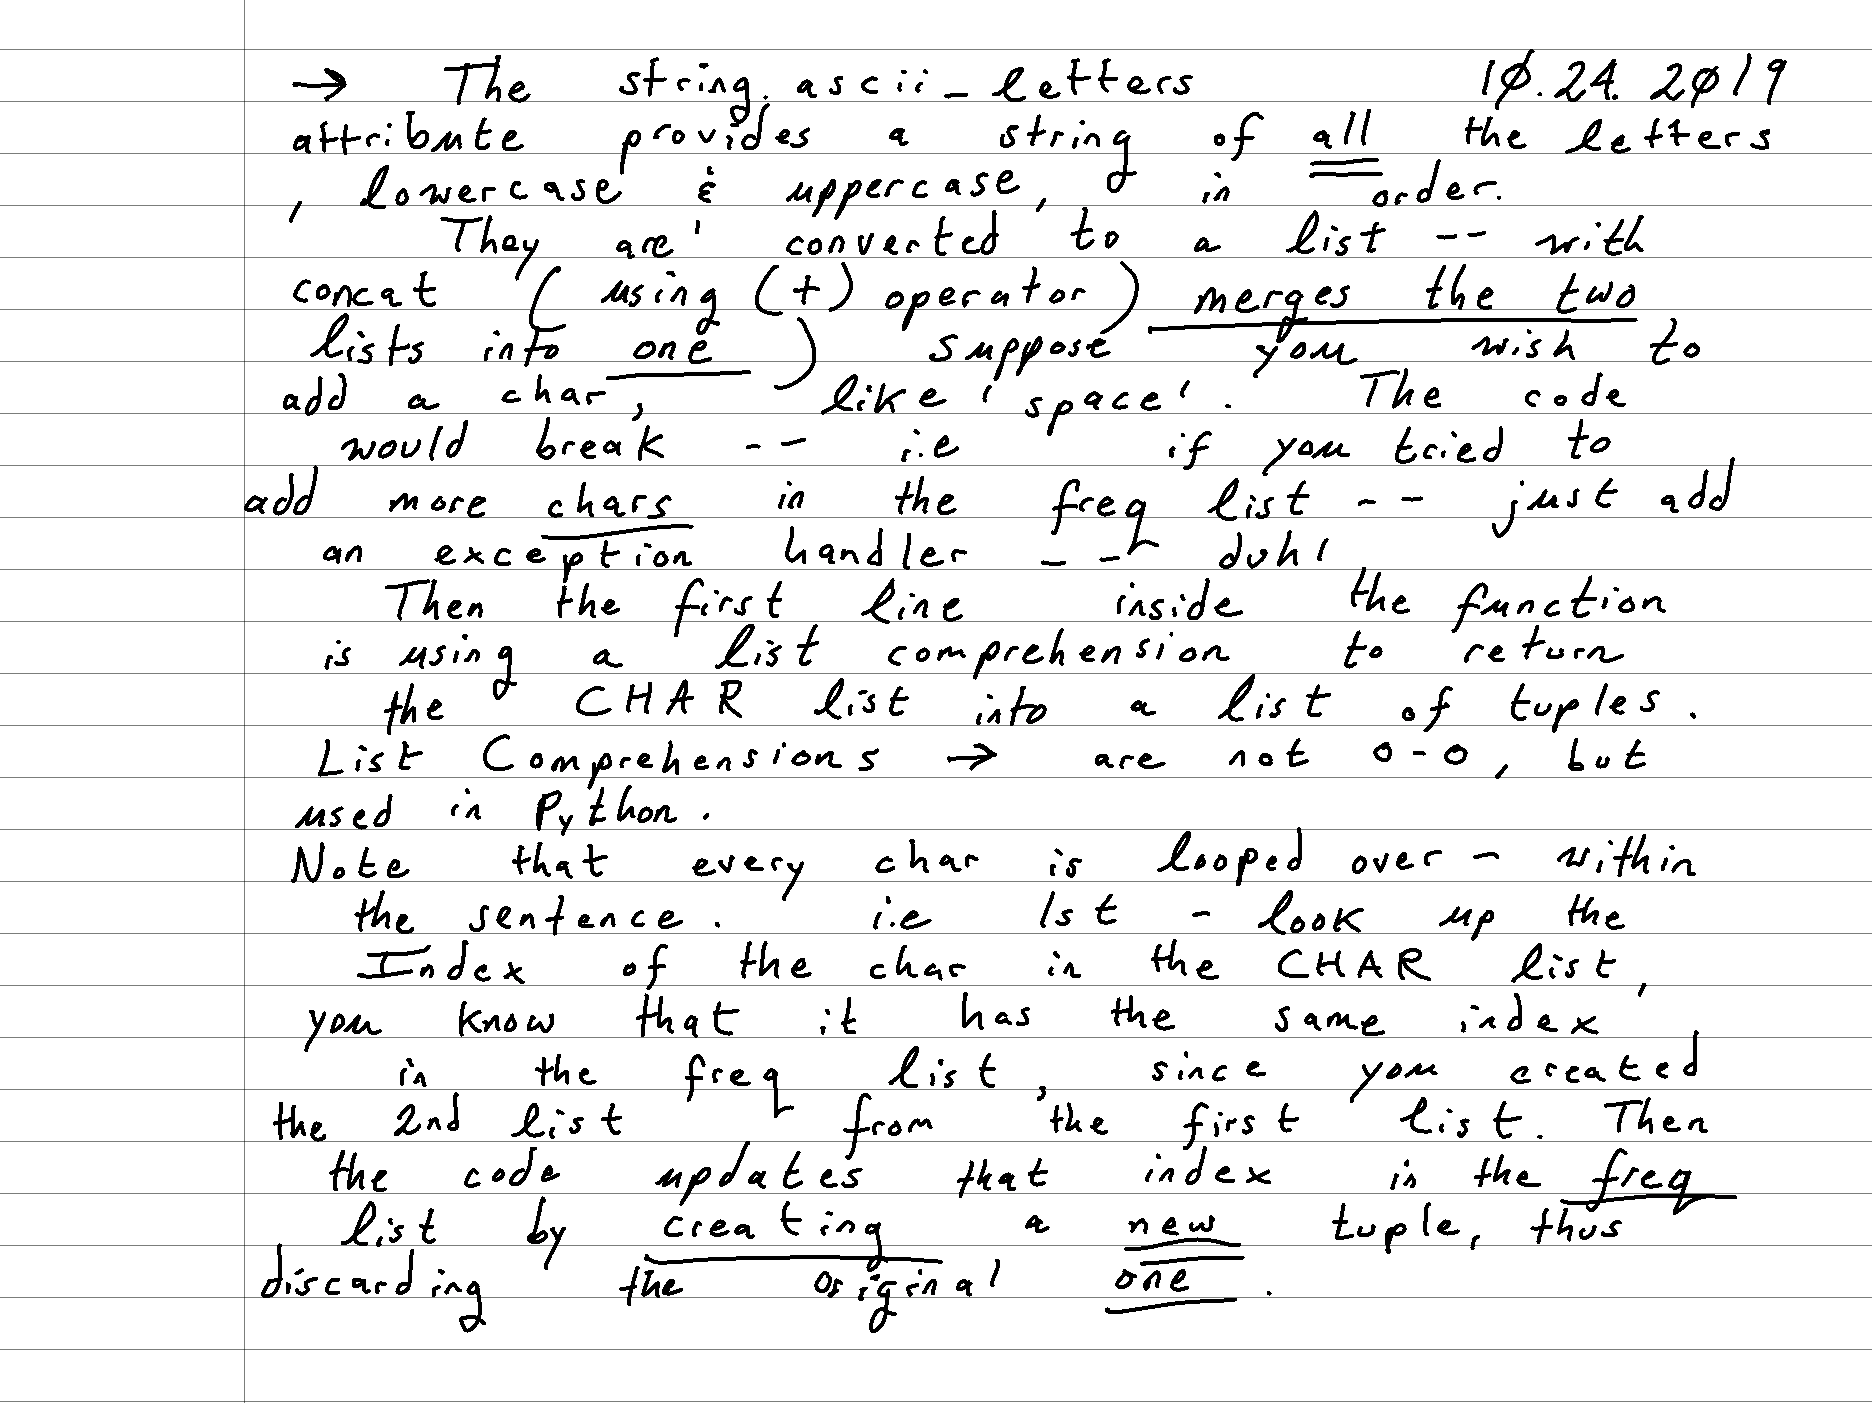 → The string.ascii_letters 10.24.2019
attribute provides a string of all the letters
, lowercase & uppercase, in order.
They are' converted to a list -- with
concat (using (+) operator) merges the two
lists into one) suppose you wish to
add a char, like 'space'. The code
would break -- i.e if you tried to
add more chars in the freq list -- just add
an exception handler -- duh!
Then the first line inside the function
is using a list comprehension to return
the CHAR list into a list of tuples.
List Comprehensions → are not O-O, but
used in Python.
Note that every char is looped over - within
the sentence. i.e 1st - look up the
Index of the char in the CHAR list,
you know that it has the same index
in the freq list, since you created
the 2nd list from the first list. Then
the code updates that index in the freq
list by creating a new tuple, thus
discarding the original one.